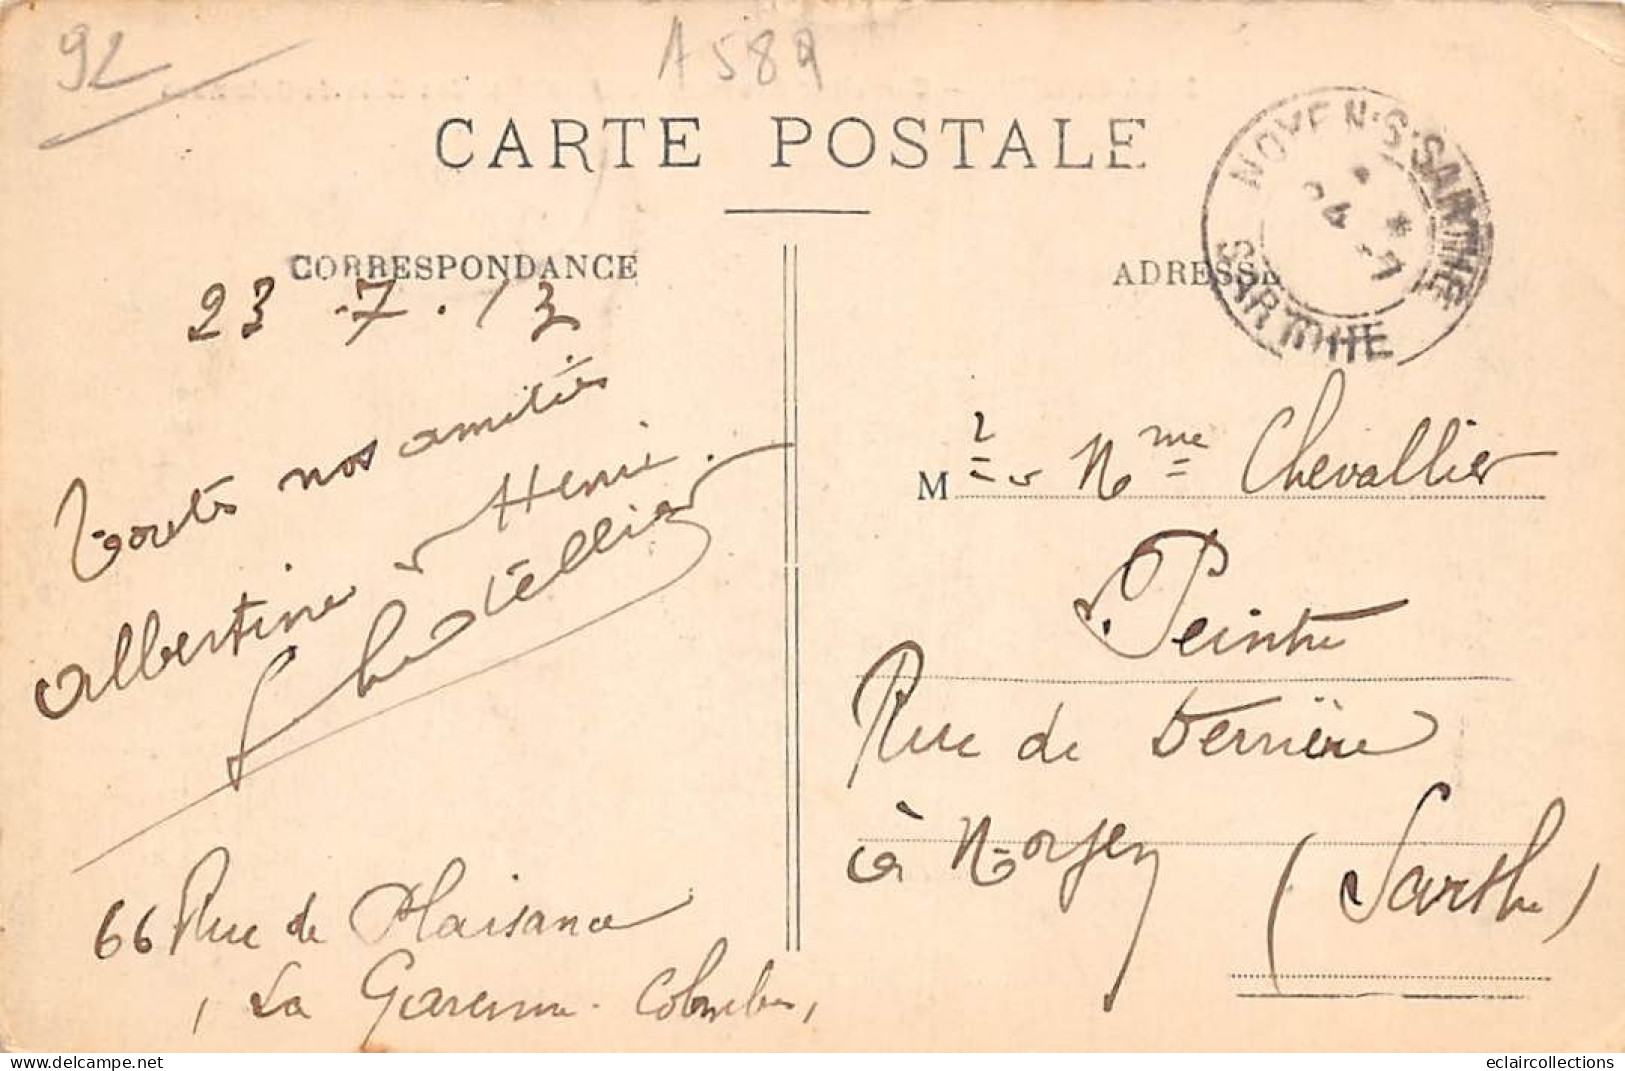 92
A589
CARTE POSTALE
NOYEN-S-SARTHE
24 -7
SARTHE
CORRESPONDANCE
ADRESSE
23.7.13
Toutes nos amitiés
Albertine et Henri.
Chatellier
66 Rue de Plaisance
La Garenne-Colombes
M r et Mme Chevallier
Peintre
Rue de Derrière
à Noyen
(Sarthe)
eclaircollections